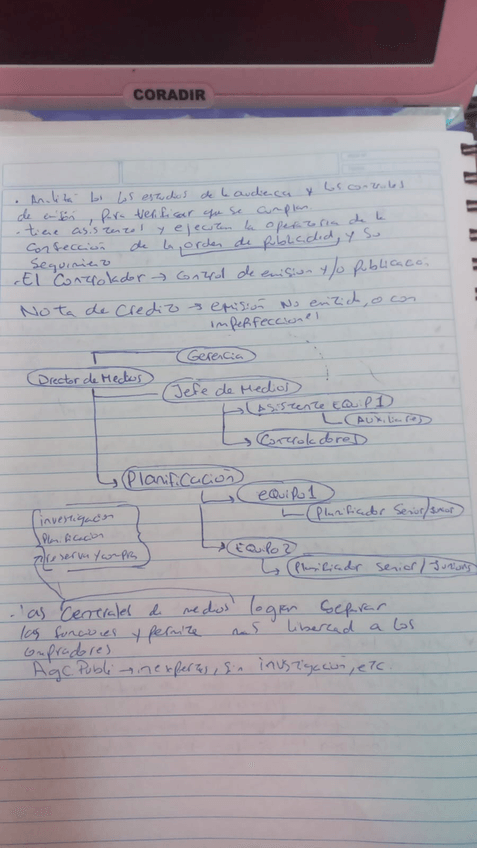 CORADIR
. Analiza los estudios de la audiencia y los controles
de emisión, para verificar que se cumplan
. tiene asistentes y ejecutan la operatoria de la
confección de la orden de publicidad, y su
seguimiento
. El Controlador → control de emision y/o publicacion
Nota de Credito → emisión No emitida, o con
imperfecciones
Gerencia
Director de Medios
Jefe de Medios
Asistente EQUIPO 1
Auxiliares
Controladores
Planificación
equipo 1
Planificador Senior/Junior
EQUIPO 2
Planificador senior/Juniors
investigacion
Planificacion
reserva y compra
. las Centrales de medios logran separar
las funciones y permite mas libertad a los
compradores
Agc Publi → inexpertos, sin investigacion, etc.